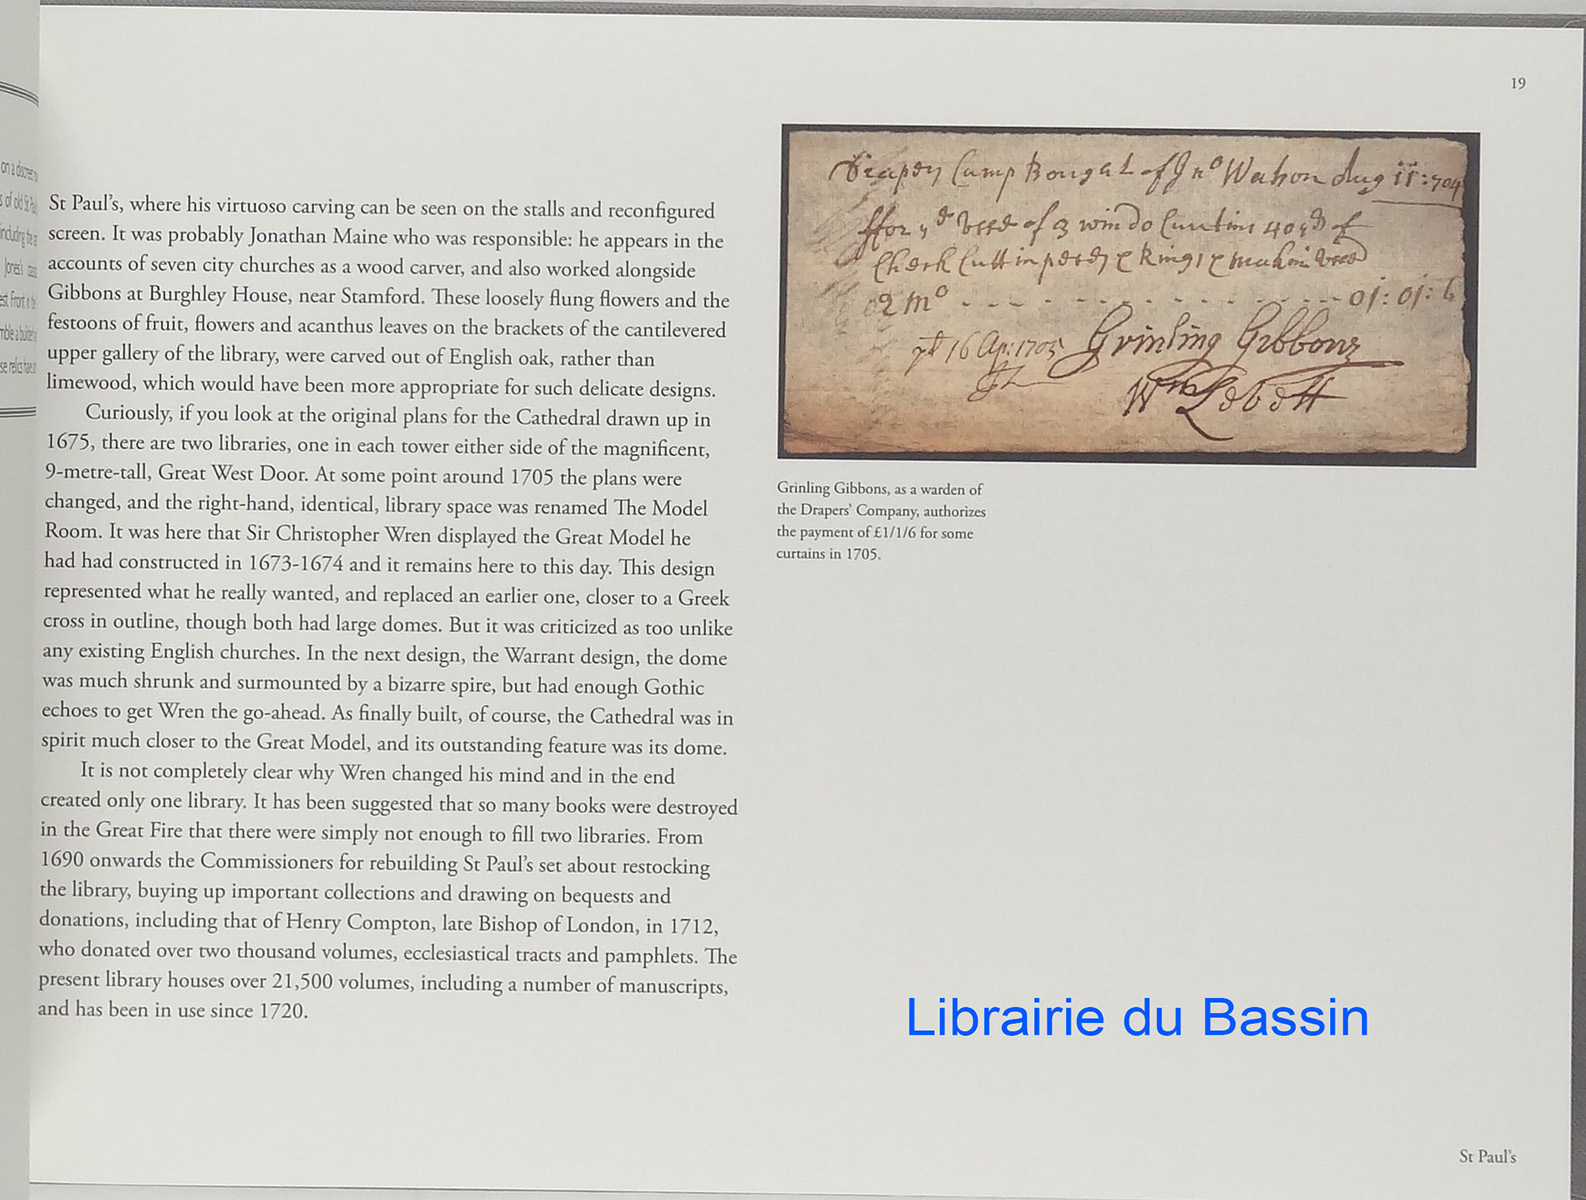 19
St Paul's, where his virtuoso carving can be seen on the stalls and reconfigured
screen. It was probably Jonathan Maine who was responsible: he appears in the
accounts of seven city churches as a wood carver, and also worked alongside
Gibbons at Burghley House, near Stamford. These loosely flung flowers and the
festoons of fruit, flowers and acanthus leaves on the brackets of the cantilevered
upper gallery of the library, were carved out of English oak, rather than
limewood, which would have been more appropriate for such delicate designs.
Curiously, if you look at the original plans for the Cathedral drawn up in
1675, there are two libraries, one in each tower either side of the magnificent,
9-metre-tall, Great West Door. At some point around 1705 the plans were
changed, and the right-hand, identical, library space was renamed The Model
Room. It was here that Sir Christopher Wren displayed the Great Model he
had had constructed in 1673-1674 and it remains here to this day. This design
represented what he really wanted, and replaced an earlier one, closer to a Greek
cross in outline, though both had large domes. But it was criticized as too unlike
any existing English churches. In the next design, the Warrant design, the dome
was much shrunk and surmounted by a bizarre spire, but had enough Gothic
echoes to get Wren the go-ahead. As finally built, of course, the Cathedral was in
spirit much closer to the Great Model, and its outstanding feature was its dome.
It is not completely clear why Wren changed his mind and in the end
created only one library. It has been suggested that so many books were destroyed
in the Great Fire that there were simply not enough to fill two libraries. From
1690 onwards the Commissioners for rebuilding St Paul's set about restocking
the library, buying up important collections and drawing on bequests and
donations, including that of Henry Compton, late Bishop of London, in 1712,
who donated over two thousand volumes, ecclesiastical tracts and pamphlets. The
present library houses over 21,500 volumes, including a number of manuscripts,
and has been in use since 1720.
Bought of Jno Aug 11: 704
ffor of 3 windo Curtins 40 of
Cutt in &
01: 01: 6
16 Ap: 1705 Grinling Gibbons
Wm
Grinling Gibbons, as a warden of
the Drapers' Company, authorizes
the payment of £1/1/6 for some
curtains in 1705.
Librairie du Bassin
St Paul's